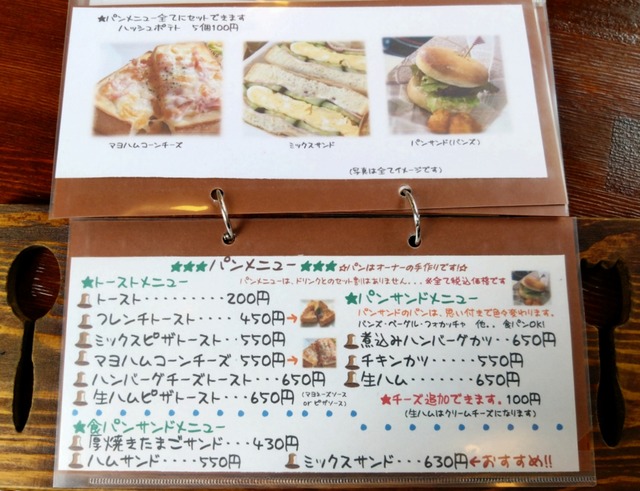 ★パンメニュー全てにセットできます
ハッシュポテト 5個100円
マヨハムコーンチーズ
ミックスサンド
パンサンド(バンズ)
(写真は全てイメージです)
★★★パンメニュー★★★ ☆パンはオーナーの手作りです!☆
パンメニューは、ドリンクとのセット割はありません...※全て税込価格です
★トーストメニュー
トースト・・・・・・・・・200円
フレンチトースト・・・・450円→
ミックスピザトースト・・550円
マヨハムコーンチーズ・550円→
ハンバーグチーズトースト・・・650円
生ハムピザトースト・・・650円 (マヨネーズソース or ピザソース)
★パンサンドメニュー
パンサンドのパンは、思い付きで色々変わります。
バンズ・ベーグル・フォカッチャ 他.. 食パンOK!
煮込みハンバーグカツ・・650円
チキンカツ・・・・・・550円
生ハム・・・・・・・・650円
★チーズ追加できます。100円
(生ハムはクリームチーズになります)
★食パンサンドメニュー
厚焼きたまごサンド・・・430円
ハムサンド・・・・550円
ミックスサンド・・・630円←おすすめ!!